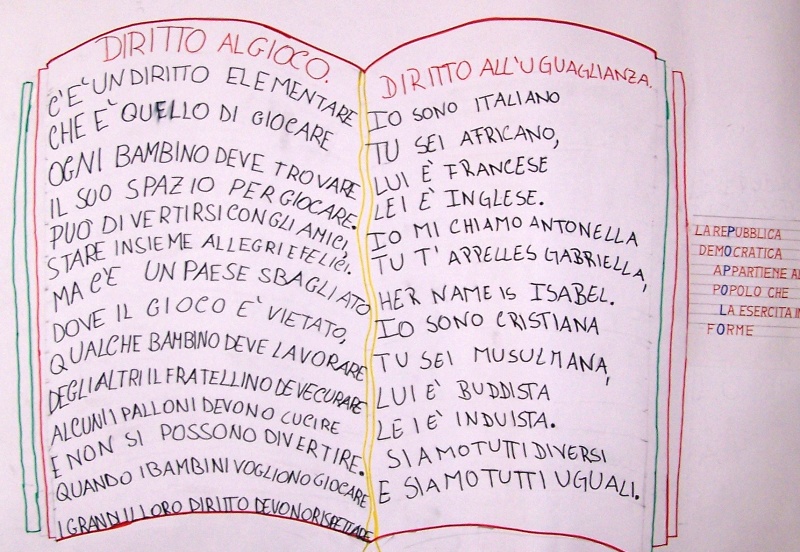 DIRITTO AL GIOCO.
C'E' UN DIRITTO ELEMENTARE
CHE E' QUELLO DI GIOCARE
OGNI BAMBINO DEVE TROVARE
IL SUO SPAZIO PER GIOCARE.
PUO' DIVERTIRSI CON GLI AMICI,
STARE INSIEME ALLEGRI E FELICI.
MA C'E' UN PAESE SBAGLIATO
DOVE IL GIOCO E' VIETATO,
QUALCHE BAMBINO DEVE LAVORARE
DEGLI ALTRI IL FRATELLINO DEVE CURARE
ALCUNI I PALLONI DEVONO CUCIRE
E NON SI POSSONO DIVERTIRE.
QUANDO I BAMBINI VOGLIONO GIOCARE
I GRANDI IL LORO DIRITTO DEVONO RISPETTARE
DIRITTO ALL'UGUAGLIANZA.
IO SONO ITALIANO
TU SEI AFRICANO,
LUI È FRANCESE
LEI E' INGLESE.
IO MI CHIAMO ANTONELLA
TU T'APPELLES GABRIELLA,
HER NAME IS ISABEL.
IO SONO CRISTIANA
TU SEI MUSULMANA,
LUI E' BUDDISTA
LEI E' INDUISTA.
SIAMO TUTTI DIVERSI
E SIAMO TUTTI UGUALI.
LA REPUBBLICA
DEMOCRATICA
APPARTIENE AL
POPOLO CHE
LA ESERCITA IN
FORME